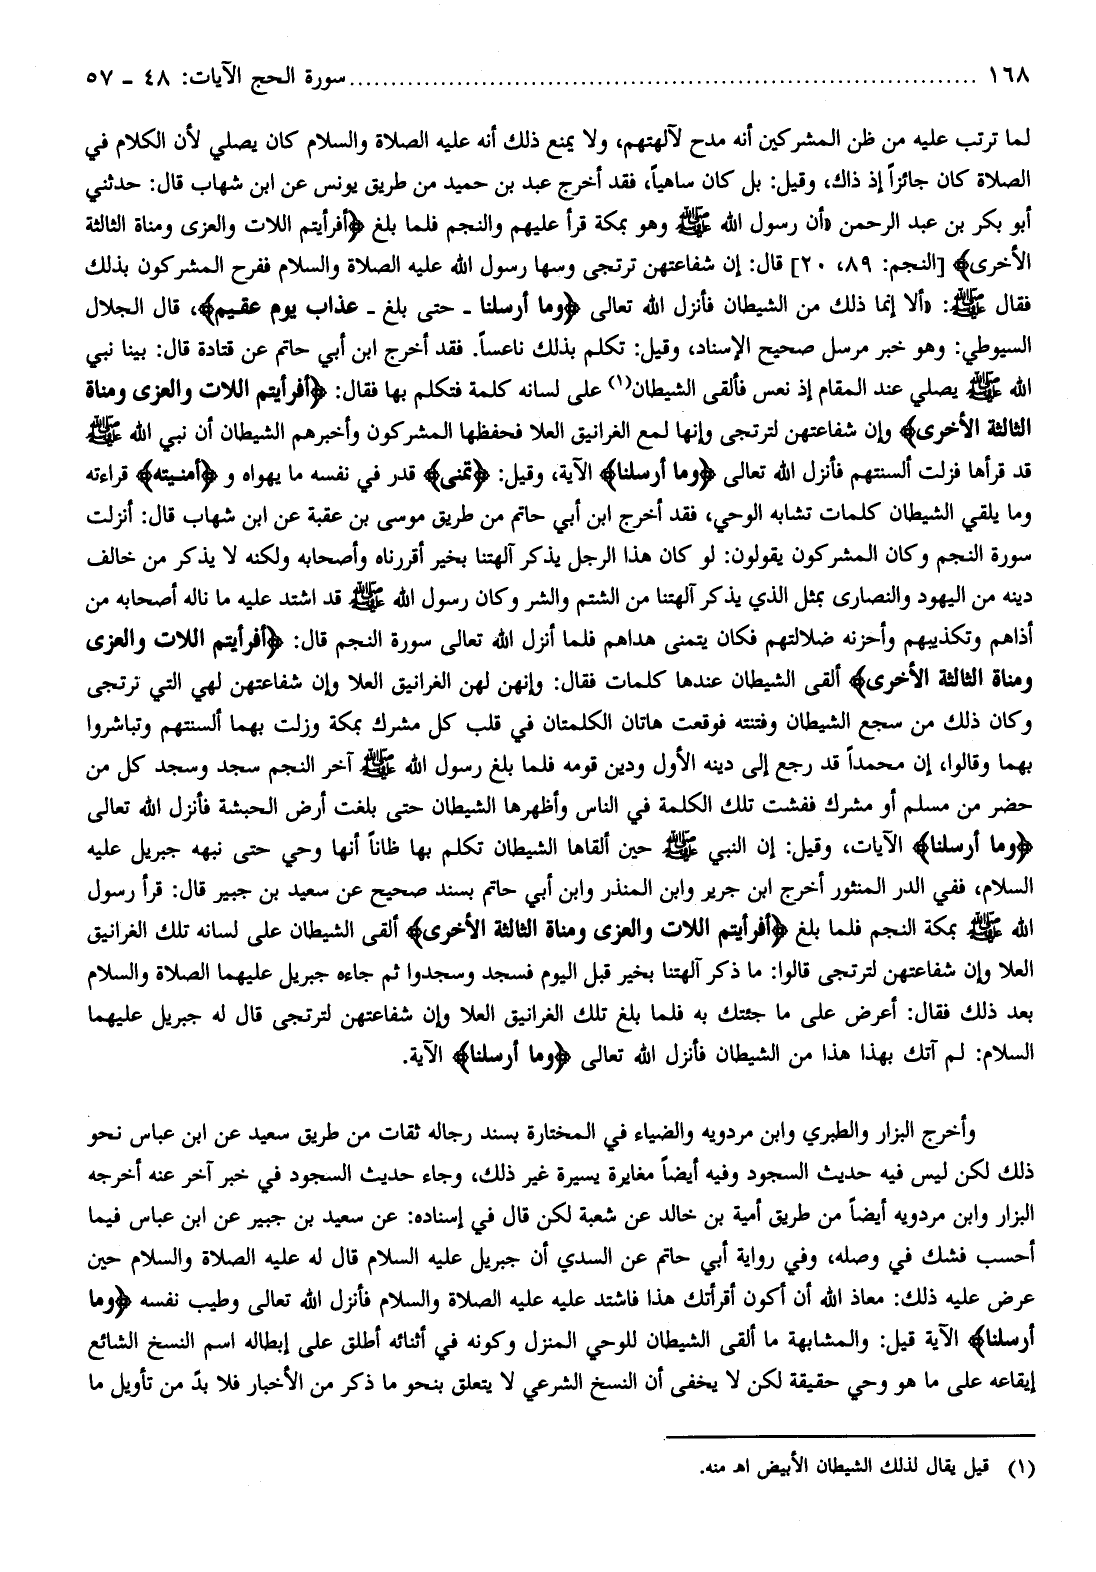 ١٦٨ ........ سورة الحج الآيات: ٤٨ ـ ٥٧
لما ترتب عليه من ظن المشركين أنه مدح لآلهتهم، ولا يمنع ذلك أنه عليه الصلاة والسلام كان يصلي لأن الكلام في
الصلاة كان جائزاً إذ ذاك، وقيل: بل كان ساهياً، فقد أخرج عبد بن حميد من طريق يونس عن ابن شهاب قال: حدثني
أبو بكر بن عبد الرحمن «أن رسول الله ﷺ وهو بمكة قرأ عليهم والنجم فلما بلغ ﴿أفرأيتم اللات والعزى ومناة الثالثة
الأخرى﴾ [النجم: ٨٩، ٢٠] قال: إن شفاعتهن ترتجى وسها رسول الله عليه الصلاة والسلام ففرح المشركون بذلك
فقال ﷺ: «ألا إنما ذلك من الشيطان فأنزل الله تعالى ﴿وما أرسلنا ـ حتى بلغ ـ عذاب يوم عقيم﴾، قال الجلال
السيوطي: وهو خبر مرسل صحيح الإسناد، وقيل: تكلم بذلك ناعساً. فقد أخرج ابن أبي حاتم عن قتادة قال: بينا نبي
الله ﷺ يصلي عند المقام إذ نعس فألقى الشيطان(١) على لسانه كلمة فتكلم بها فقال: ﴿أفرأيتم اللات والعزى ومناة
الثالثة الأخرى﴾ وإن شفاعتهن لترتجى وإنها لمع الغرانيق العلا فحفظها المشركون وأخبرهم الشيطان أن نبي الله ﷺ
قد قرأها فزلت ألسنتهم فأنزل الله تعالى ﴿وما أرسلنا﴾ الآية، وقيل: ﴿تمنى﴾ قدر في نفسه ما يهواه و ﴿أمنيته﴾ قراءته
وما يلقي الشيطان كلمات تشابه الوحي، فقد أخرج ابن أبي حاتم من طريق موسى بن عقبة عن ابن شهاب قال: أنزلت
سورة النجم وكان المشركون يقولون: لو كان هذا الرجل يذكر آلهتنا بخير أقررناه وأصحابه ولكنه لا يذكر من خالف
دينه من اليهود والنصارى بمثل الذي يذكر آلهتنا من الشتم والشر وكان رسول الله ﷺ قد اشتد عليه ما ناله أصحابه من
أذاهم وتكذيبهم وأحزنه ضلالتهم فكان يتمنى هداهم فلما أنزل الله تعالى سورة النجم قال: ﴿أفرأيتم اللات والعزى
ومناة الثالثة الأخرى﴾ ألقى الشيطان عندها كلمات فقال: وإنهن لهن الغرانيق العلا وإن شفاعتهن لهي التي ترتجى
وكان ذلك من سجع الشيطان وفتنته فوقعت هاتان الكلمتان في قلب كل مشرك بمكة وزلت بهما ألسنتهم وتباشروا
بهما وقالوا، إن محمداً قد رجع إلى دينه الأول ودين قومه فلما بلغ رسول الله ﷺ آخر النجم سجد وسجد كل من
حضر من مسلم أو مشرك ففشت تلك الكلمة في الناس وأظهرها الشيطان حتى بلغت أرض الحبشة فأنزل الله تعالى
﴿وما أرسلنا﴾ الآيات، وقيل: إن النبي ﷺ حين ألقاها الشيطان تكلم بها ظاناً أنها وحي حتى نبهه جبريل عليه
السلام، ففي الدر المنثور أخرج ابن جرير وابن المنذر وابن أبي حاتم بسند صحيح عن سعيد بن جبير قال: قرأ رسول
الله ﷺ بمكة النجم فلما بلغ ﴿أفرأيتم اللات والعزى ومناة الثالثة الأخرى﴾ ألقى الشيطان على لسانه تلك الغرانيق
العلا وإن شفاعتهن لترتجى قالوا: ما ذكر آلهتنا بخير قبل اليوم فسجد وسجدوا ثم جاءه جبريل عليهما الصلاة والسلام
بعد ذلك فقال: أعرض على ما جئتك به فلما بلغ تلك الغرانيق العلا وإن شفاعتهن لترتجى قال له جبريل عليهما
السلام: لم آتك بهذا هذا من الشيطان فأنزل الله تعالى ﴿وما أرسلنا﴾ الآية.
وأخرج البزار والطبري وابن مردويه والضياء في المختارة بسند رجاله ثقات من طريق سعيد عن ابن عباس نحو
ذلك لكن ليس فيه حديث السجود وفيه أيضاً مغايرة يسيرة غير ذلك، وجاء حديث السجود في خبر آخر عنه أخرجه
البزار وابن مردويه أيضاً من طريق أمية بن خالد عن شعبة لكن قال في إسناده: عن سعيد بن جبير عن ابن عباس فيما
أحسب فشك في وصله، وفي رواية أبي حاتم عن السدي أن جبريل عليه السلام قال له عليه الصلاة والسلام حين
عرض عليه ذلك: معاذ الله أن أكون أقرأتك هذا فاشتد عليه عليه الصلاة والسلام فأنزل الله تعالى وطيب نفسه ﴿وما
أرسلنا﴾ الآية قيل: والمشابهة ما ألقى الشيطان للوحي المنزل وكونه في أثنائه أطلق على إبطاله اسم النسخ الشائع
إيقاعه على ما هو وحي حقيقة لكن لا يخفى أن النسخ الشرعي لا يتعلق بنحو ما ذكر من الأخبار فلا بدّ من تأويل ما
(١) قيل يقال لذلك الشيطان الأبيض اهـ منه.